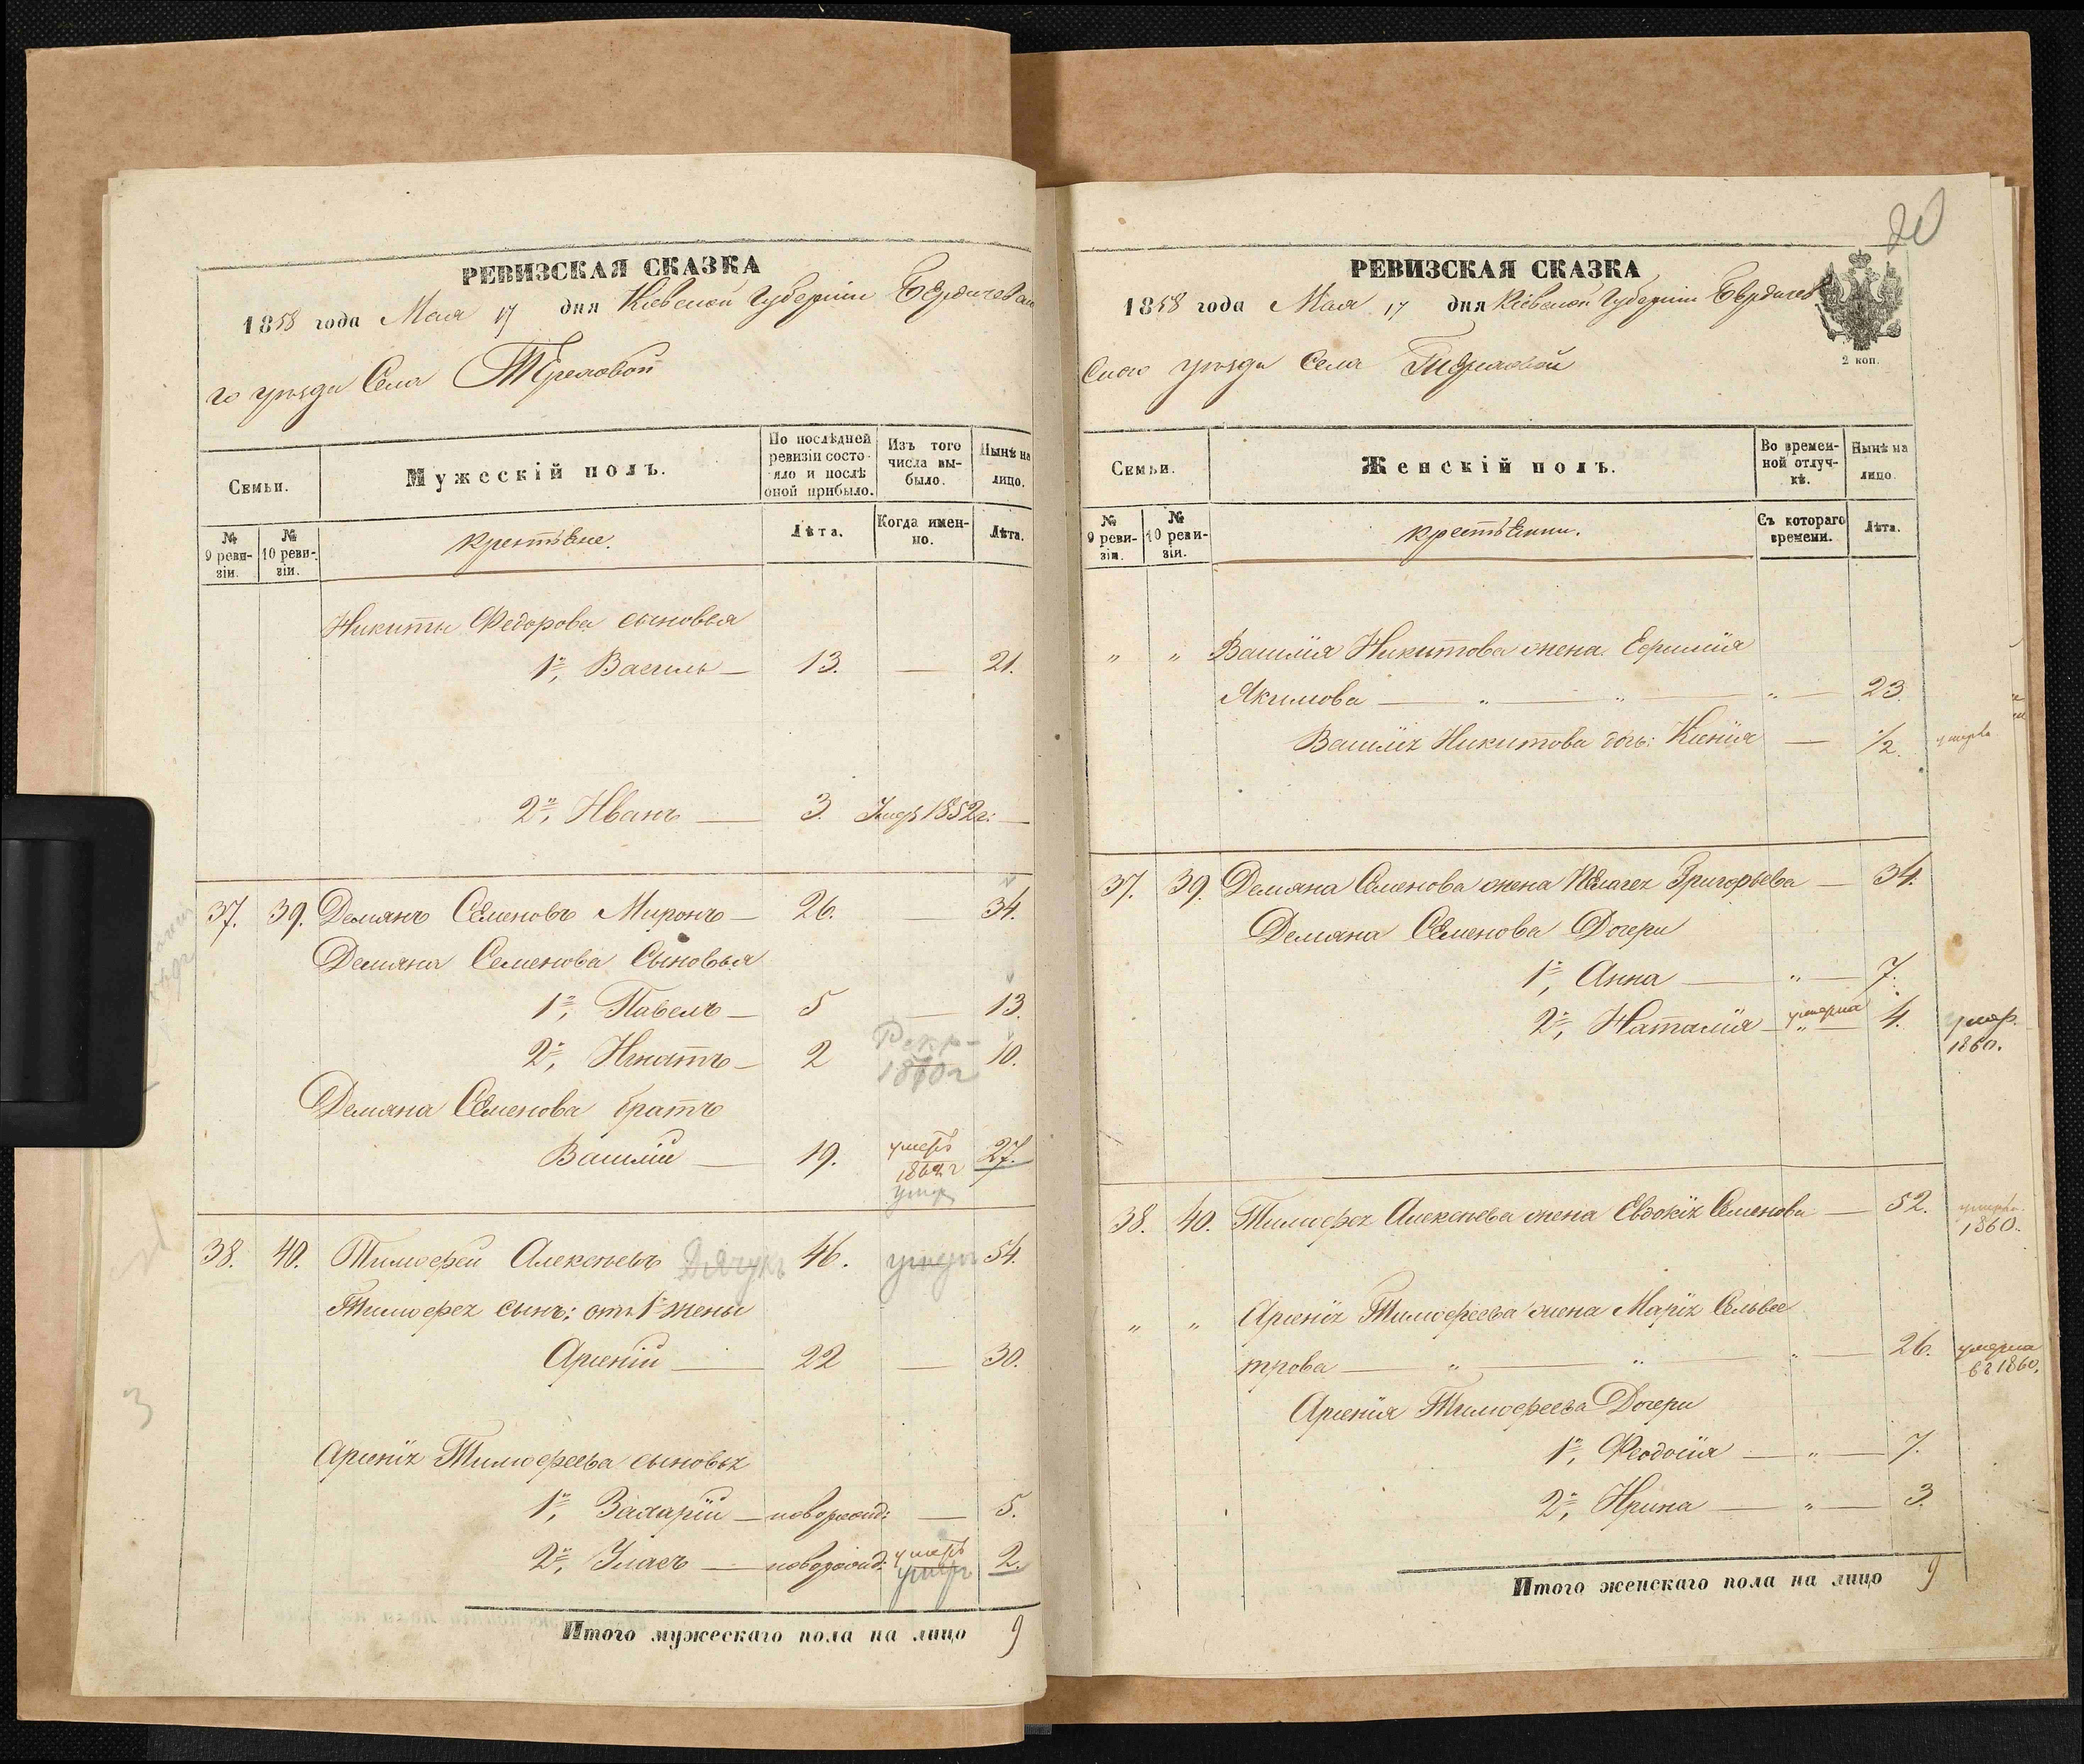 РЕВИЗСКАЯ СКАЗКА
1858 года Мая 17 дня Кіевской Губерніи Бердичевска
го уѣзда Села
Семьи.
Мужескій полъ.
По послѣдней ревизіи состояло и послѣ оной прибыло.
Изъ того числа выбыло.
Нынѣ на лицо.
№ 9 ревизіи.
№ 10 ревизіи.
крестьяне.
Лѣта.
Когда именно.
Лѣта.
Никиты Федорова сыновья
1й, Василь — 13. — 21.
2й, Иванъ — 3. Умеръ 1852г: —
37. 39. Демянъ Семеновъ Миронъ — 26. 34.
Демяна Семенова Сыновья
1й, Павелъ — 5 — 13.
2й, Игнатъ — 2 Рекр- 10.
18 0г
Демяна Семенова братъ
Василій — 19. умеръ 27.
1862г
умер
38. 40. Тимофей Алексѣевъ Дячукъ 46. умеръ 54.
Тимофея сынъ: отъ 1й жены
Арсеній — 22 — 30.
3
Арсенія Тимофеева сыновья
1й, Захарій — новорожд: — 5.
2й, Уласъ — новорожд: умеръ 2.
умеръ
Итого мужескаго пола на лицо 9
20
РЕВИЗСКАЯ СКАЗКА
1858 года Мая 17 дня Кіевской Губерніи Бердичев
скаго уѣзда Села
2 коп.
Семьи.
Женскій полъ.
Во временной отлучкѣ.
Нынѣ на лицо.
№ 9 ревизіи.
№ 10 ревизіи.
крестьянки.
Съ котораго времени.
Лѣта.
„ „ Василія Никитова жена Ефимія
Якимова — „ — „ — „ — 23.
Василія Никитова дочь: Ксенія — 1/2. умерла
37. 39. Демяна Семенова жена Пелагея Григорьева — 34.
Демяна Семенова Дочери
1я, Анна — „ — 7.
2я, Наталія — умерла „ — 4. умер.
1860.
38. 40. Тимофея Алексѣева жена Евдокія Семенова — 52. умерла
1860.
„ „ Арсенія Тимофеева жена Марія Сельвес
трова — „ — „ — „ — 26. умерла
въ 1860.
Арсенія Тимофеева Дочери
1я, Феодосія — „ — 7.
2я, Ирина — „ — 3.
Итого женскаго пола на лицо 9